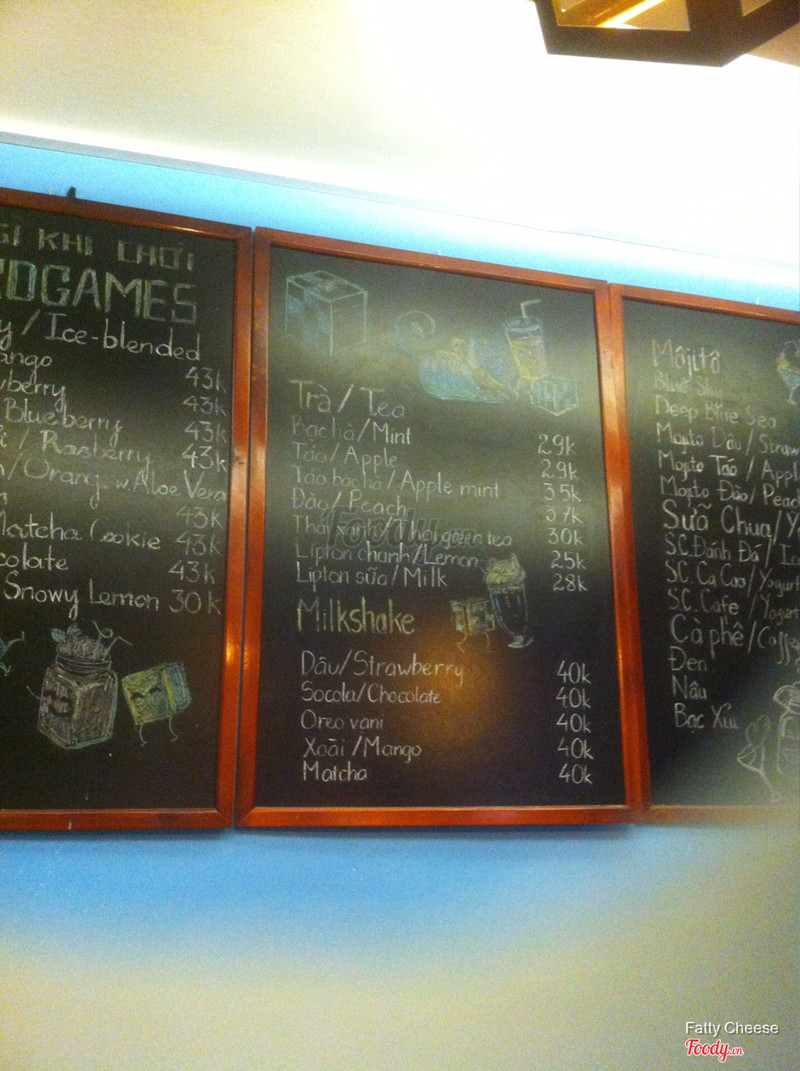 GÌ KHI CHƠI
DGAMES
y / Ice-blended
ango 43k
wberry 43k
Blueberry 43k
i / Raspberry 43k
/ Orang w. Aloe Vera
43k
Matcha Cookie 43k
ocolate 43k
Snowy Lemon 30k
Trà / Tea
Bạc hà / Mint 29k
Táo / Apple 29k
Táo bạc hà / Apple mint 35k
Đào / Beach 37k
Thái xanh / Thai green tea 30k
Lipton chanh / Lemon 25k
Lipton sữa / Milk 28k
Milkshake
Dâu / Strawberry 40k
Socola / Chocolate 40k
Oreo vani 40k
Xoài / Mango 40k
Matcha 40k
Môjitô
Blue Sky
Deep Blue Sea
Mojito Dâu / Straw
Mojito Táo / Appl
Mojito Đào / Peac
Sữa Chua / Y
S.C. Đánh Đá / Ice
S.C. Ca Cao / Yogurt
S.C. Cafe / Yogurt
Cà phê / Coffe
Đen
Nâu
Bạc Xỉu
Foody.vn
Fatty Cheese
Foody.vn